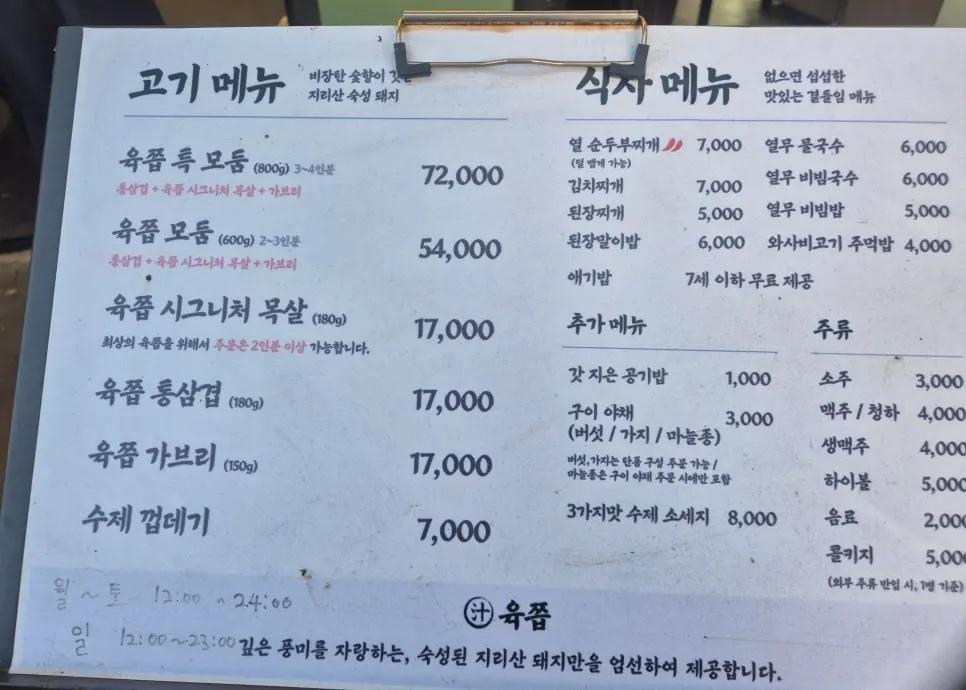 고기 메뉴
비장탄 숯향이
지리산 숙성 돼지
육쫍 특 모둠 (800g) 3~4인분 72,000
통삼겹 + 육쫍 시그니처 목살 + 가브리
육쫍 모둠 (600g) 2~3인분 54,000
통삼겹 + 육쫍 시그니처 목살 + 가브리
육쫍 시그니처 목살 (180g) 17,000
최상의 육쫍을 위해서 주문은 2인분 이상 가능합니다.
육쫍 통삼겹 (180g) 17,000
육쫍 가브리 (150g) 17,000
수제 껍데기 7,000
월 ~ 토 12:00 ~ 24:00
일 12:00~23:00
식사 메뉴
없으면 섭섭한
맛있는 곁들임 메뉴
열 순두부찌개 7,000
(덜 맵게 가능)
김치찌개 7,000
된장찌개 5,000
된장말이밥 6,000
애기밥 7세 이하 무료 제공
열무 물국수 6,000
열무 비빔국수 6,000
열무 비빔밥 5,000
와사비고기 주먹밥 4,000
추가 메뉴
갓 지은 공기밥 1,000
구이 야채 3,000
(버섯 / 가지 / 마늘쫑)
버섯,가지는 단품 구성 주문 가능 /
마늘쫑은 구이 야채 주문 시에만 포함
3가지맛 수제 소세지 8,000
주류
소주 3,000
맥주 / 청하 4,000
생맥주 4,000
하이볼 5,000
음료 2,000
콜키지 5,000
(외부 주류 반입 시, 1병 기준)
汁 육쫍
깊은 풍미를 자랑하는, 숙성된 지리산 돼지만을 엄선하여 제공합니다.